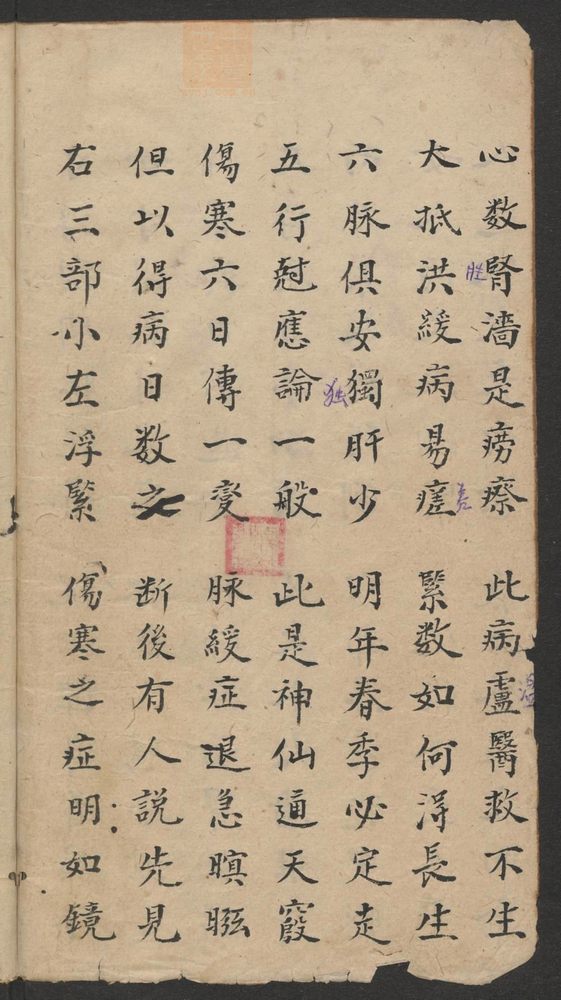 心数腎濇是痨瘵 此病盧醫救不生
大抵洪緩病易瘥 緊数如何淂長生
六脉俱安獨肝少 明年春季必定走
五行尅應論一般 此是神仙通天竅
傷寒六日傳一變 脉緩症退急瞑
但以得病日数之 断後有人説先見
右三部小左浮緊 傷寒之症明如鏡